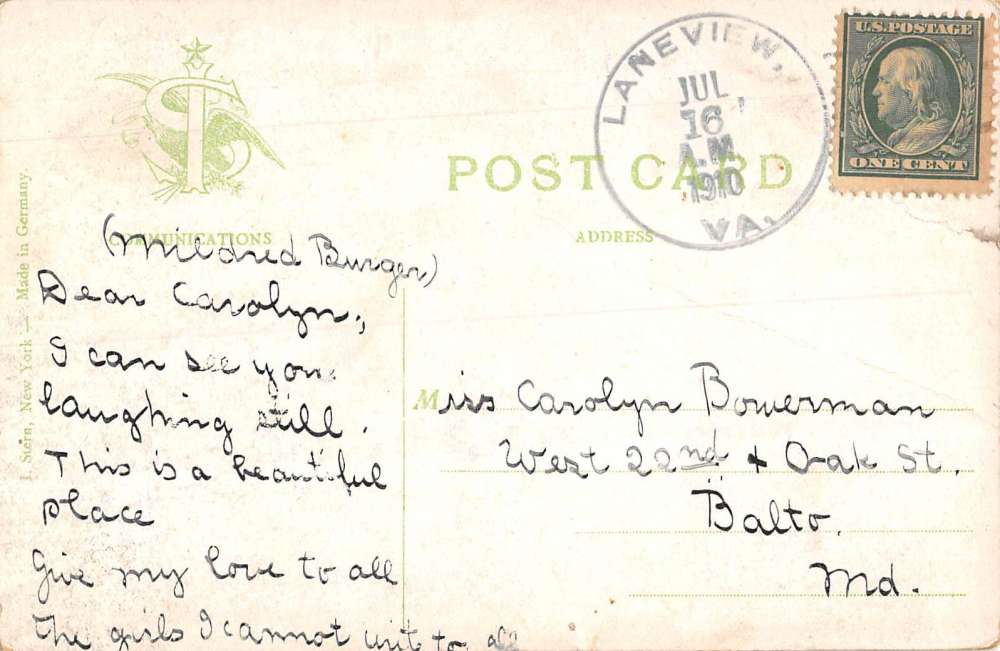 U.S. POSTAGE
ONE CENT
LANEVIEW,
JUL
16
A.M
1910
VA.
POST CARD
COMMUNICATIONS
ADDRESS
I. Stern, New York — Made in Germany.
(Mildred Burger)
Dear Carolyn,
I can see you
laughing still.
This is a beautiful
place
Give my love to all
the girls I cannot writ to all
Miss Carolyn Bowerman
West 22nd + Oak St.
Balto.
Md.